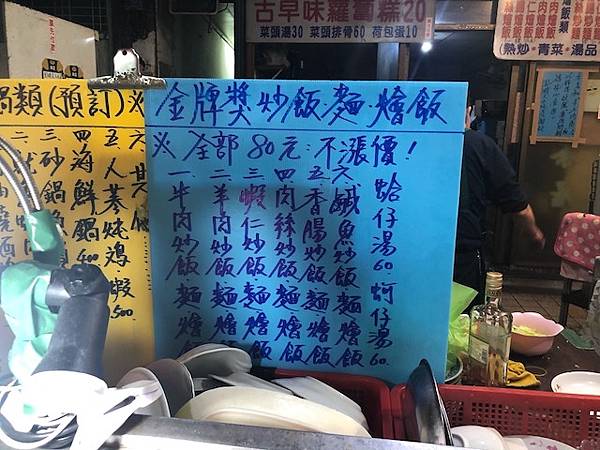 古早味蘿蔔糕20
菜頭湯30 菜頭排骨60 荷包蛋10
(熱炒·青菜·湯品
鍋類(預訂)※
金牌獎炒飯·麵·燴飯
※全部80元·不漲價!
一、牛肉炒飯·麵燴飯
二、羊肉炒飯·麵燴飯
三、蝦仁炒飯·麵燴飯
四、肉絲炒飯·麵燴飯
五、香腸炒飯·麵燴飯
六、鹹魚炒飯·麵燴飯
蛤仔湯60 蚵仔湯60
四海鮮鍋
五人蔘炖鸡
六
蝦
500